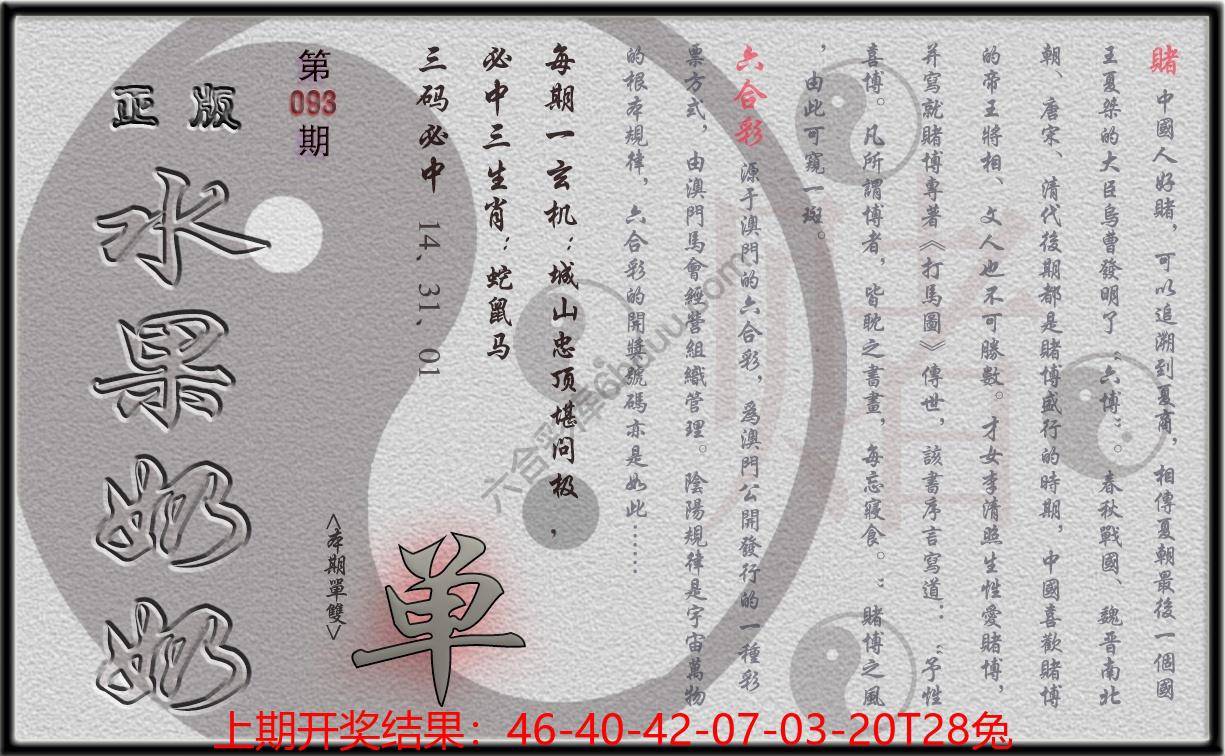 赌 中國人好賭，可以追溯到夏商，相傳夏朝最後一個國
王夏桀的大臣烏曹發明了“六博”。春秋戰國、魏晋南北
朝、唐宋、清代後期都是賭博盛行的時期，中國喜歡賭博
的帝王將相、文人也不可勝數。才女李清照生性愛賭博，
并寫就賭博專著《打馬圖》傳世，該書序言寫道：“予性
喜博。凡所謂博者，皆耽之書畫，每忘寢食。”賭博之風
，由此可窺一斑。
六合彩 源于澳門的六合彩，爲澳門公開發行的一種彩
票方式，由澳門馬會經營組織管理。陰陽規律是宇宙萬物
的根本規律，六合彩的開獎號碼亦是如此……
每期一玄机：城山忠顶堪问极，
必中三生肖：蛇鼠马
三码必中 14、31、01
第
093
期
正版
水果奶奶
<本期單雙>
单
赌
六合彩库6buuu.com
上期开奖结果：46-40-42-07-03-20T28兔